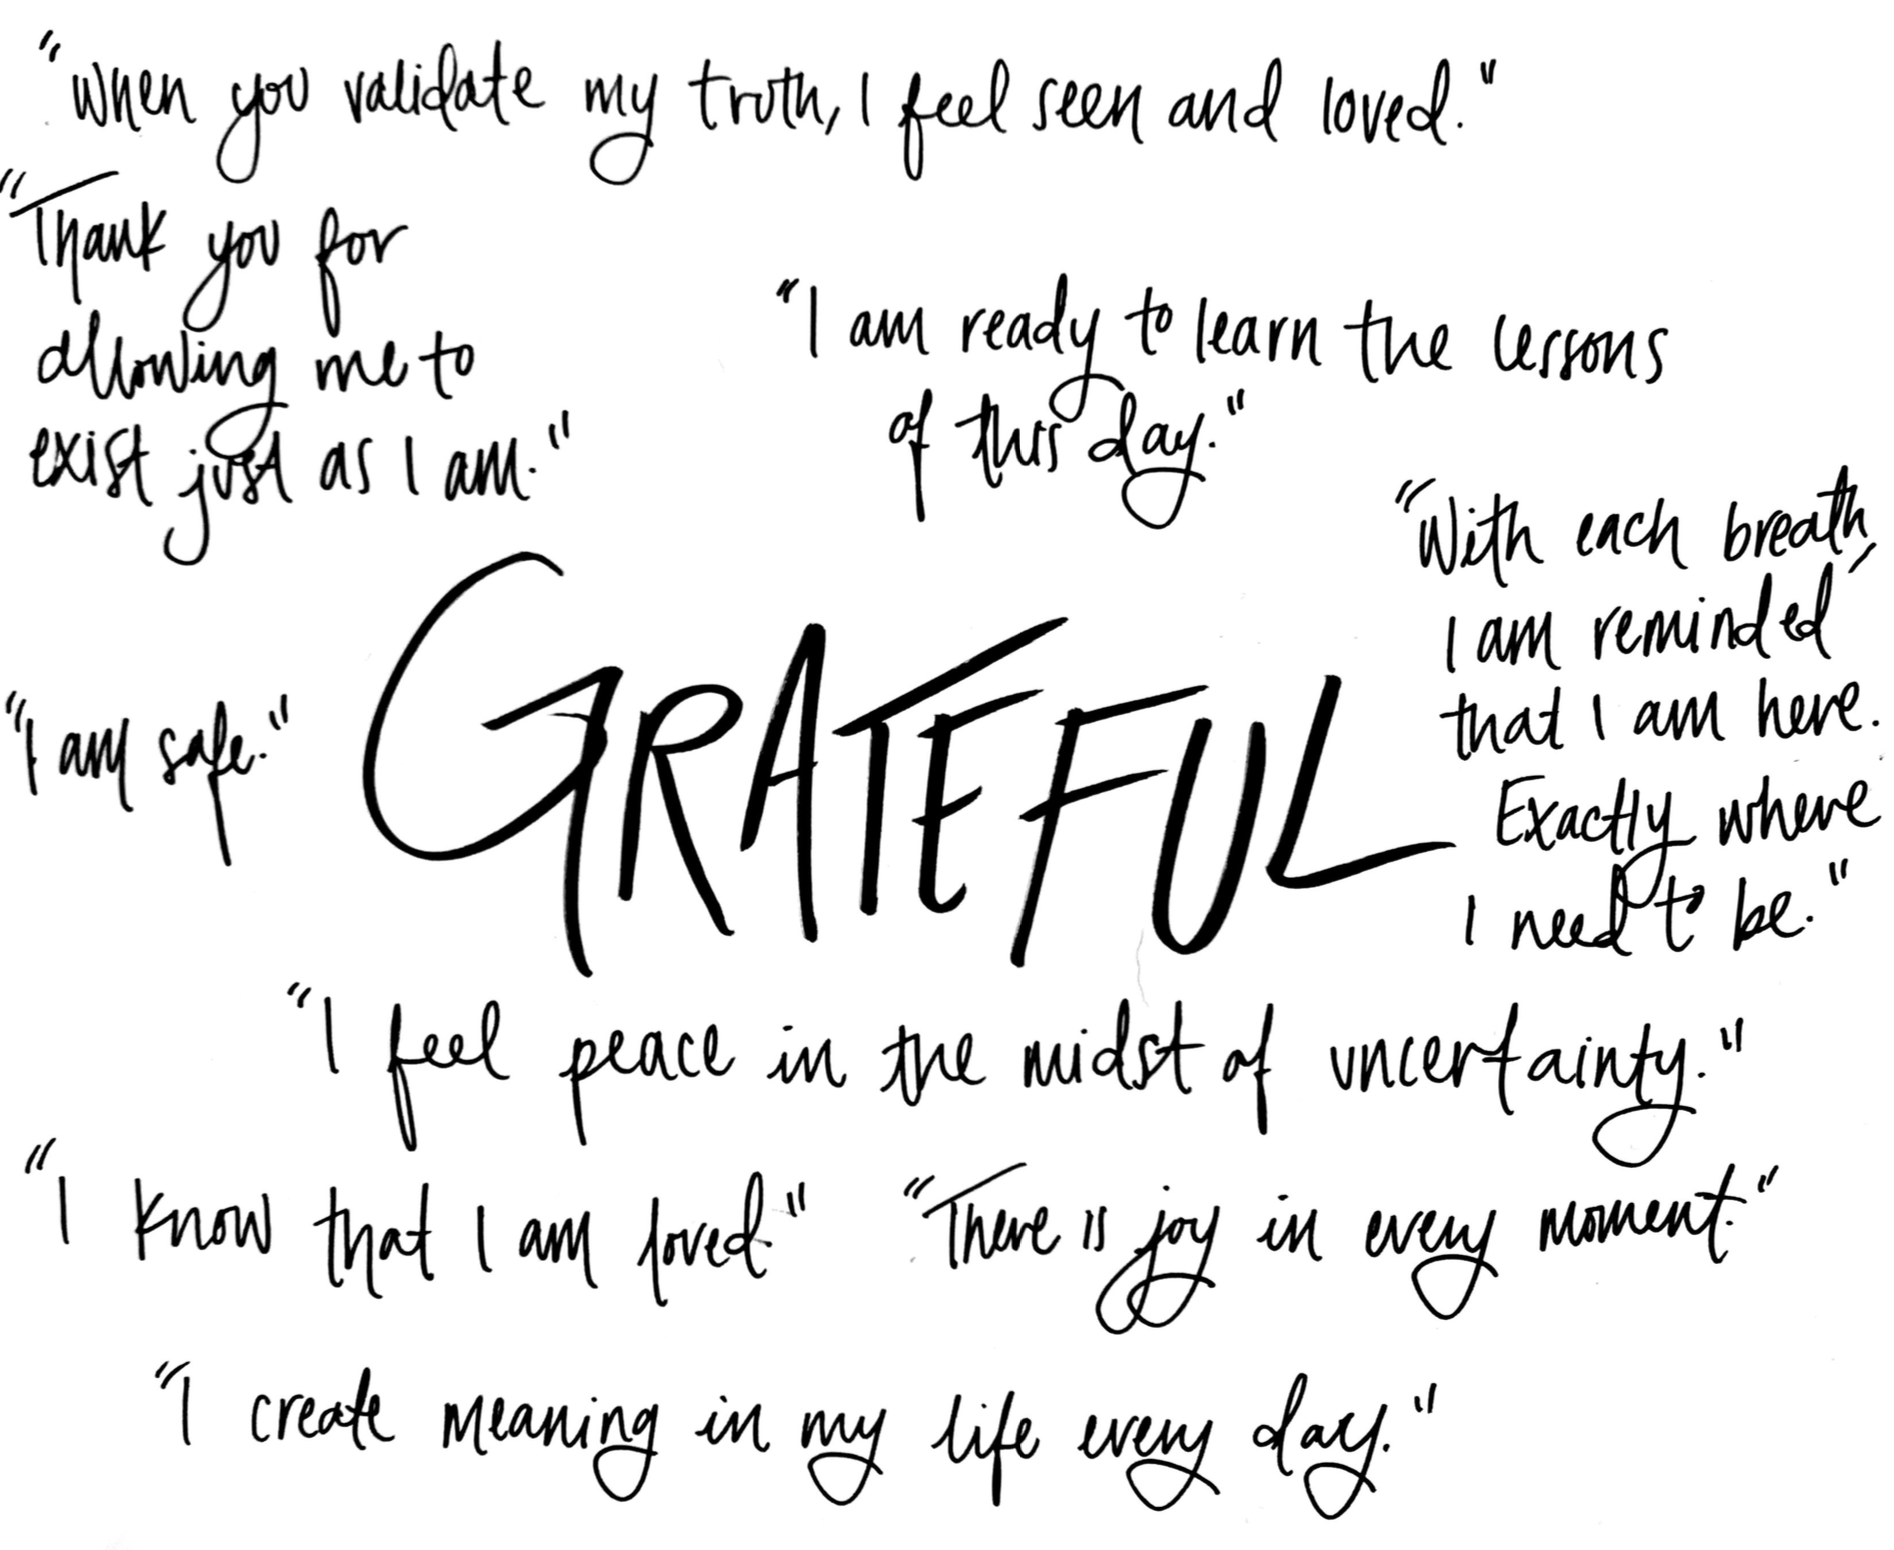 "When you validate my truth, I feel seen and loved."
"Thank you for
allowing me to
exist just as I am."
"I am ready to learn the lessons
of this day."
"With each breath,
I am reminded
that I am here.
Exactly where
I need to be."
"I am safe."
GRATEFUL
"I feel peace in the midst of uncertainty."
"I know that I am loved."
"There is joy in every moment."
"I create meaning in my life every day."